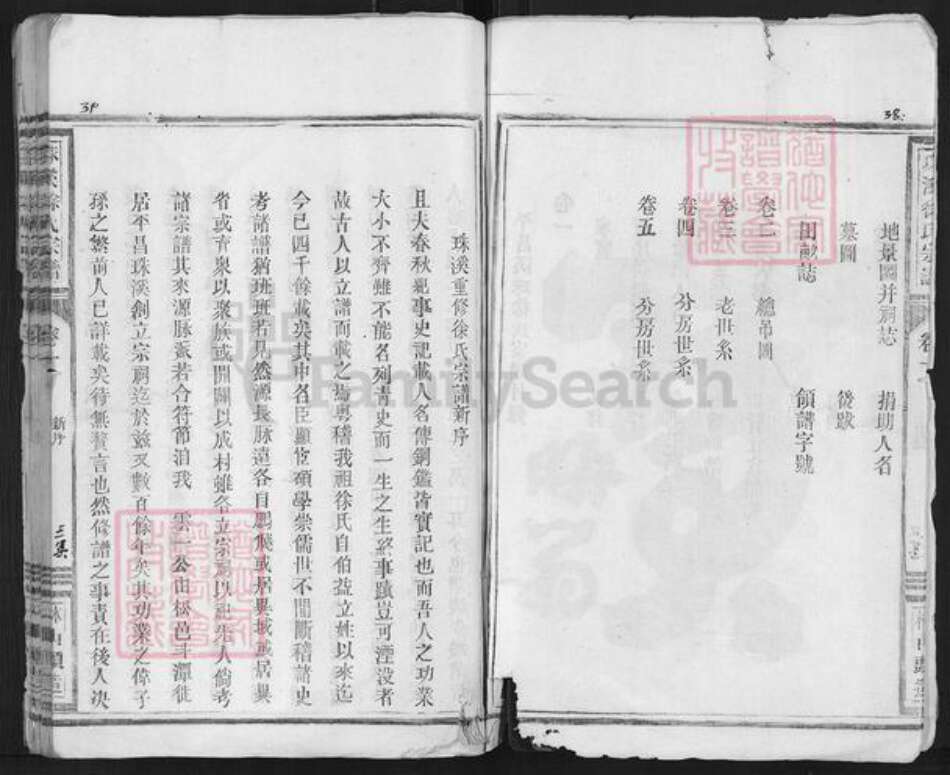 38
地景圖并祠誌　捐助人名
墓圖　後跋
田畝誌　領譜字號
卷二　總吊圖
卷三　老世系
卷四　分房世系
卷五　分房世系
39
珠溪重修徐氏宗譜新序
且夫春秋紀事史記載人名傳銅鑑皆實記也而吾人之功業
大小不齊雖不能名列青史而一生之生終事蹟豈可湮没者
故古人以立譜而載之粤稽我祖徐氏自伯益立姓以來迄
今已四千餘載矣其中名臣顯宦碩學崇儒世不間斷稽諸史
考諸譜猶班班若見然源長脉遠各自鵬飛或居異域或居異
省或育衆以聚族或開闢以成村雖各立宗祠以祀先人倘考
諸宗譜其來源脉派若合符節洎我　雲一公由松邑斗潭徙
居平昌珠溪創立宗祠迄於茲又數百餘年矣其功業之偉子
孫之繁前人已詳載矣待無贅言也然修譜之事責在後人决
珠溪徐氏宗譜
新序
FamilySearch